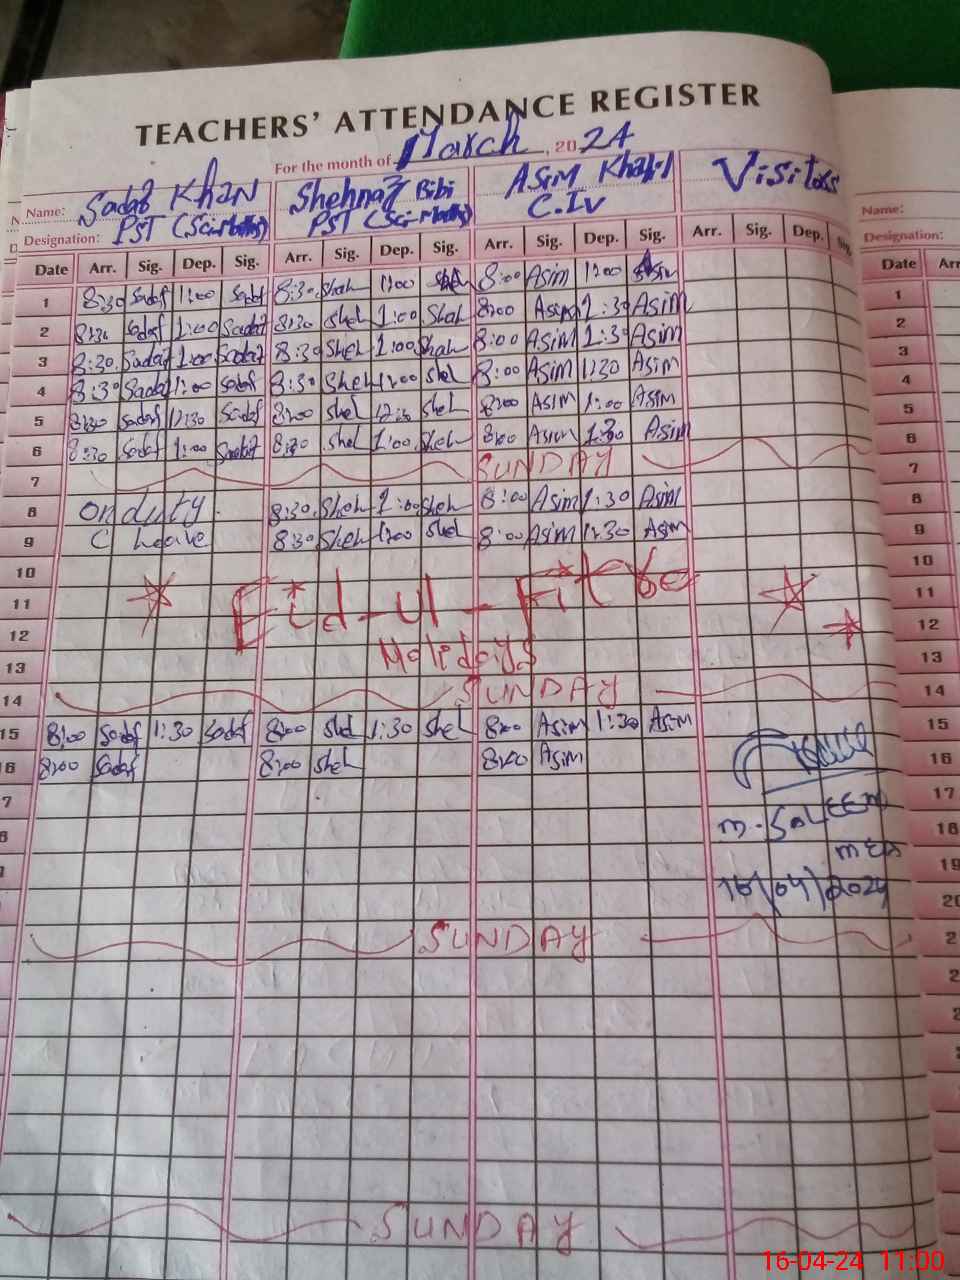 TEACHERS' ATTENDANCE REGISTER
For the month of March, 2024
Name: Sadaf Khan Shehnaz Bibi Asim Khalil Visitors
Designation: PST (Sci-Maths) PST (Sci-Maths) C.IV
Date Arr. Sig. Dep. Sig. Arr. Sig. Dep. Sig. Arr. Sig. Dep. Sig. Arr. Sig. Dep. Sig.
1 8:30 Sadaf 1:00 Sadaf 8:30 Sheh 1:00 Sheh 8:00 Asim 1:00 Asim
2 8:30 Sadaf 1:00 Sadaf 8:30 Sheh 1:00 Sheh 8:00 Asim 1:30 Asim
3 8:30 Sadaf 1:00 Sadaf 8:30 Sheh 1:00 Sheh 8:00 Asim 1:30 Asim
4 8:30 Sadaf 1:00 Sadaf 8:30 Sheh 1:00 Sheh 8:00 Asim 1:30 Asim
5 8:30 Sadaf 12:30 Sadaf 8:00 Sheh 12:30 Sheh 8:00 Asim 1:00 Asim
6 8:30 Sadaf 1:00 Sadaf 8:30 Sheh 1:00 Sheh 8:00 Asim 1:30 Asim
7 SUNDAY
8 On duty 8:30 Sheh 1:00 Sheh 8:00 Asim 1:30 Asim
9 C leave 8:30 Sheh 1:00 Sheh 8:00 Asim 1:30 Asim
10
11 Eid-ul-Fitre
12
13 Holidays
14 SUNDAY
15 8:00 Sadaf 1:30 Sadaf 8:00 Sheh 1:30 Sheh 8:00 Asim 1:30 Asim
16 8:00 Sadaf 8:00 Sheh 8:00 Asim
M. SALEEM
MEA
16/04/2024
SUNDAY
SUNDAY
Name:
Designation:
Date Arr
1
2
3
4
5
6
7
8
9
10
11
12
13
14
15
16
17
18
19
20
16-04-24 11:00